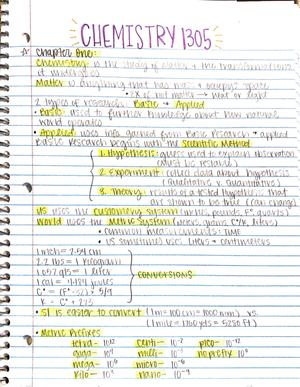 CHEMISTRY 1305
Chapter One:
Chemistry is the study of matter + the transformations
it undergoes
Matter is anything that has mass + occupys space
• EX of not matter → heat or light
2 types of research: Basic + Applied
• Basic: used to further knowledge about how natural
world operates
• Applied: uses info gained from Basic Research + applied
Basic Research begins with the Scientific Method
1. Hypothesis: guess used to explain observation
(must be testable)
2. Experiment: collect data about hypothesis
(qualitative v. quantitative)
3. Theory: results of a tested hypothesis that
are shown to be true (can change)
US uses the customary system (inches, pounds, F°, quarts)
World uses the Metric System (meters, grams, C°/K, liters)
• common measurements: time
• US sometimes uses liters + centimeters
1 inch = 2.54 cm
2.2 lbs = 1 kilogram
1.057 qts = 1 liter
1 cal = 4.184 joules
C° = (F° - 32) × 5/9
K = C° + 273
CONVERSIONS
• SI is easier to convert (1m = 100cm = 1000 mm) vs.
(1 mile = 1760 yds = 5280 ft)
• Metric Prefixes
tetra- 10¹² centi- 10⁻² pico- 10⁻¹²
giga- 10⁹ milli- 10⁻³ no prefix 10⁰
mega- 10⁶ micro- 10⁻⁶
kilo- 10³ nano- 10⁻⁹